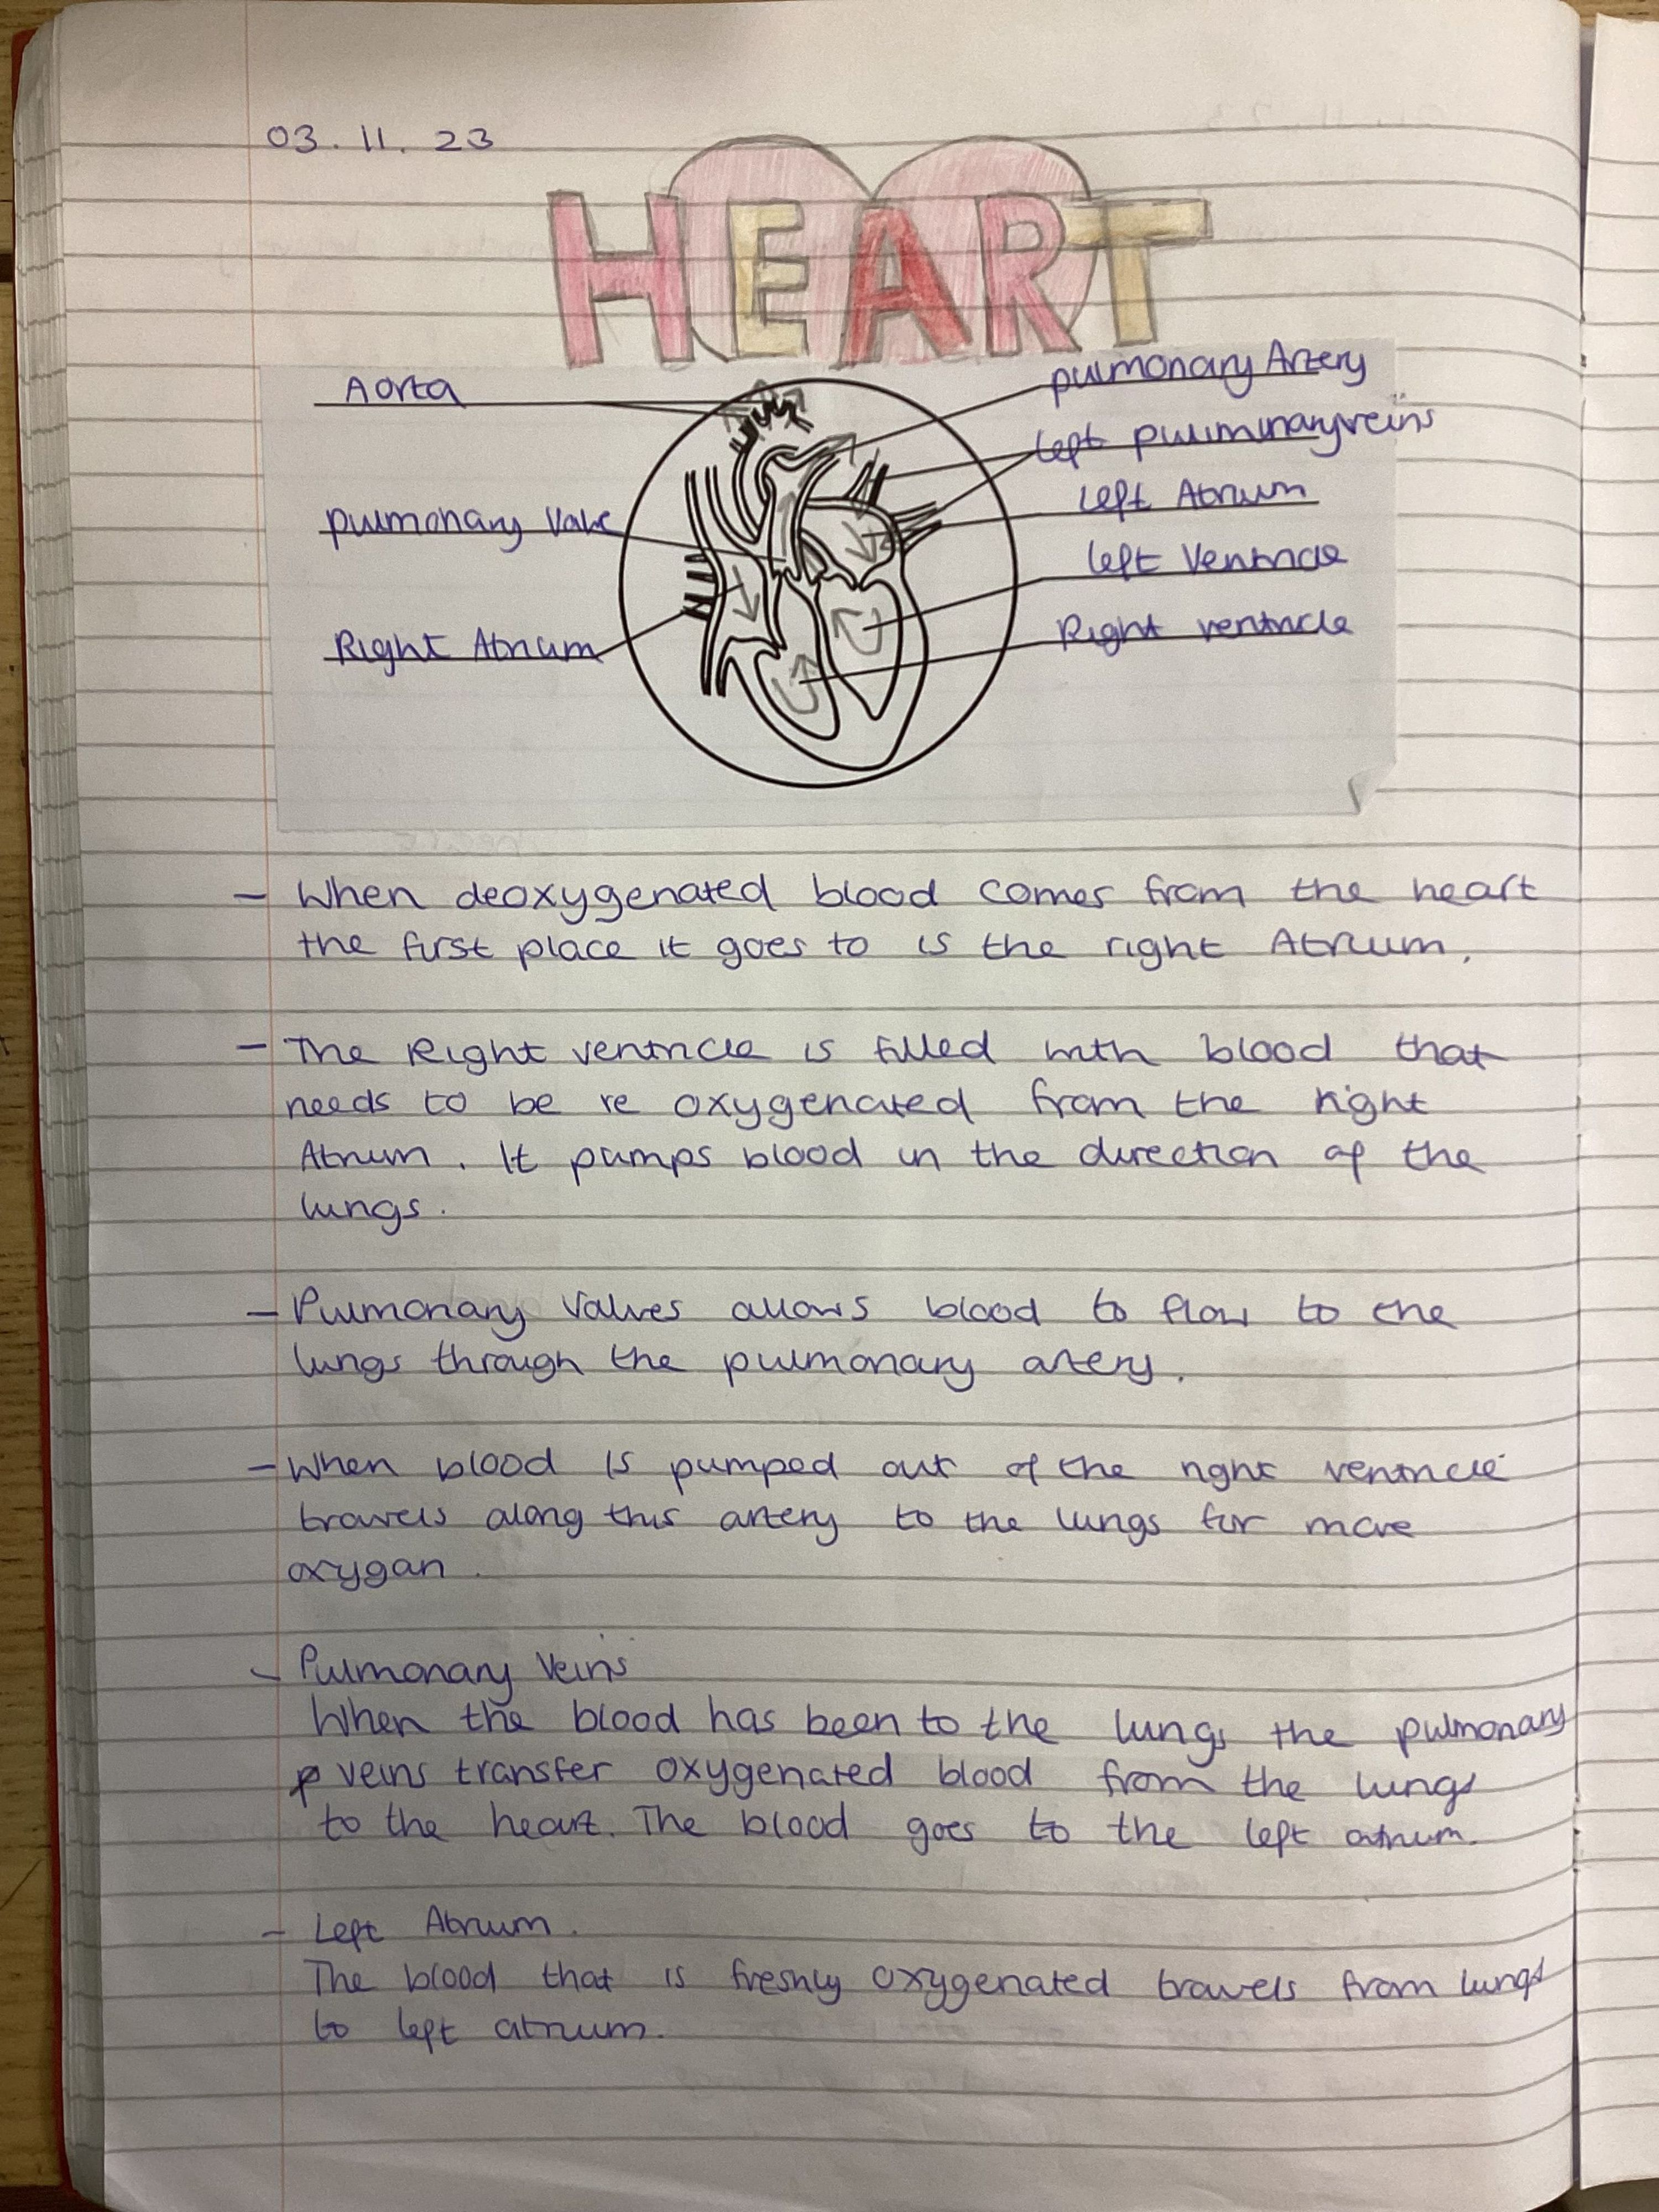 03.11.23
HEART
Aorta
pulmonary Artery
left puluminaryveins
pulmonary Valve
left Atrium
left Ventricle
Right Atrium
Right ventricle
- When deoxygenated blood comes from the heart
the first place it goes to is the right Atrium.
- The Right ventricle is filled with blood that
needs to be re oxygenated from the right
Atrium. It pumps blood in the direction of the
lungs.
- Pulmonary Valves allows blood to flow to the
lungs through the pulmonary artery.
- When blood is pumped out of the right ventricle
travels along this artery to the lungs for more
oxygan.
- Pulmonary Veins
When the blood has been to the lungs the pulmonary
veins transfer oxygenated blood from the lungs
to the heart. The blood goes to the left atrium.
- Left Atrium.
The blood that is freshly oxygenated travels from lungs
to left atrium.